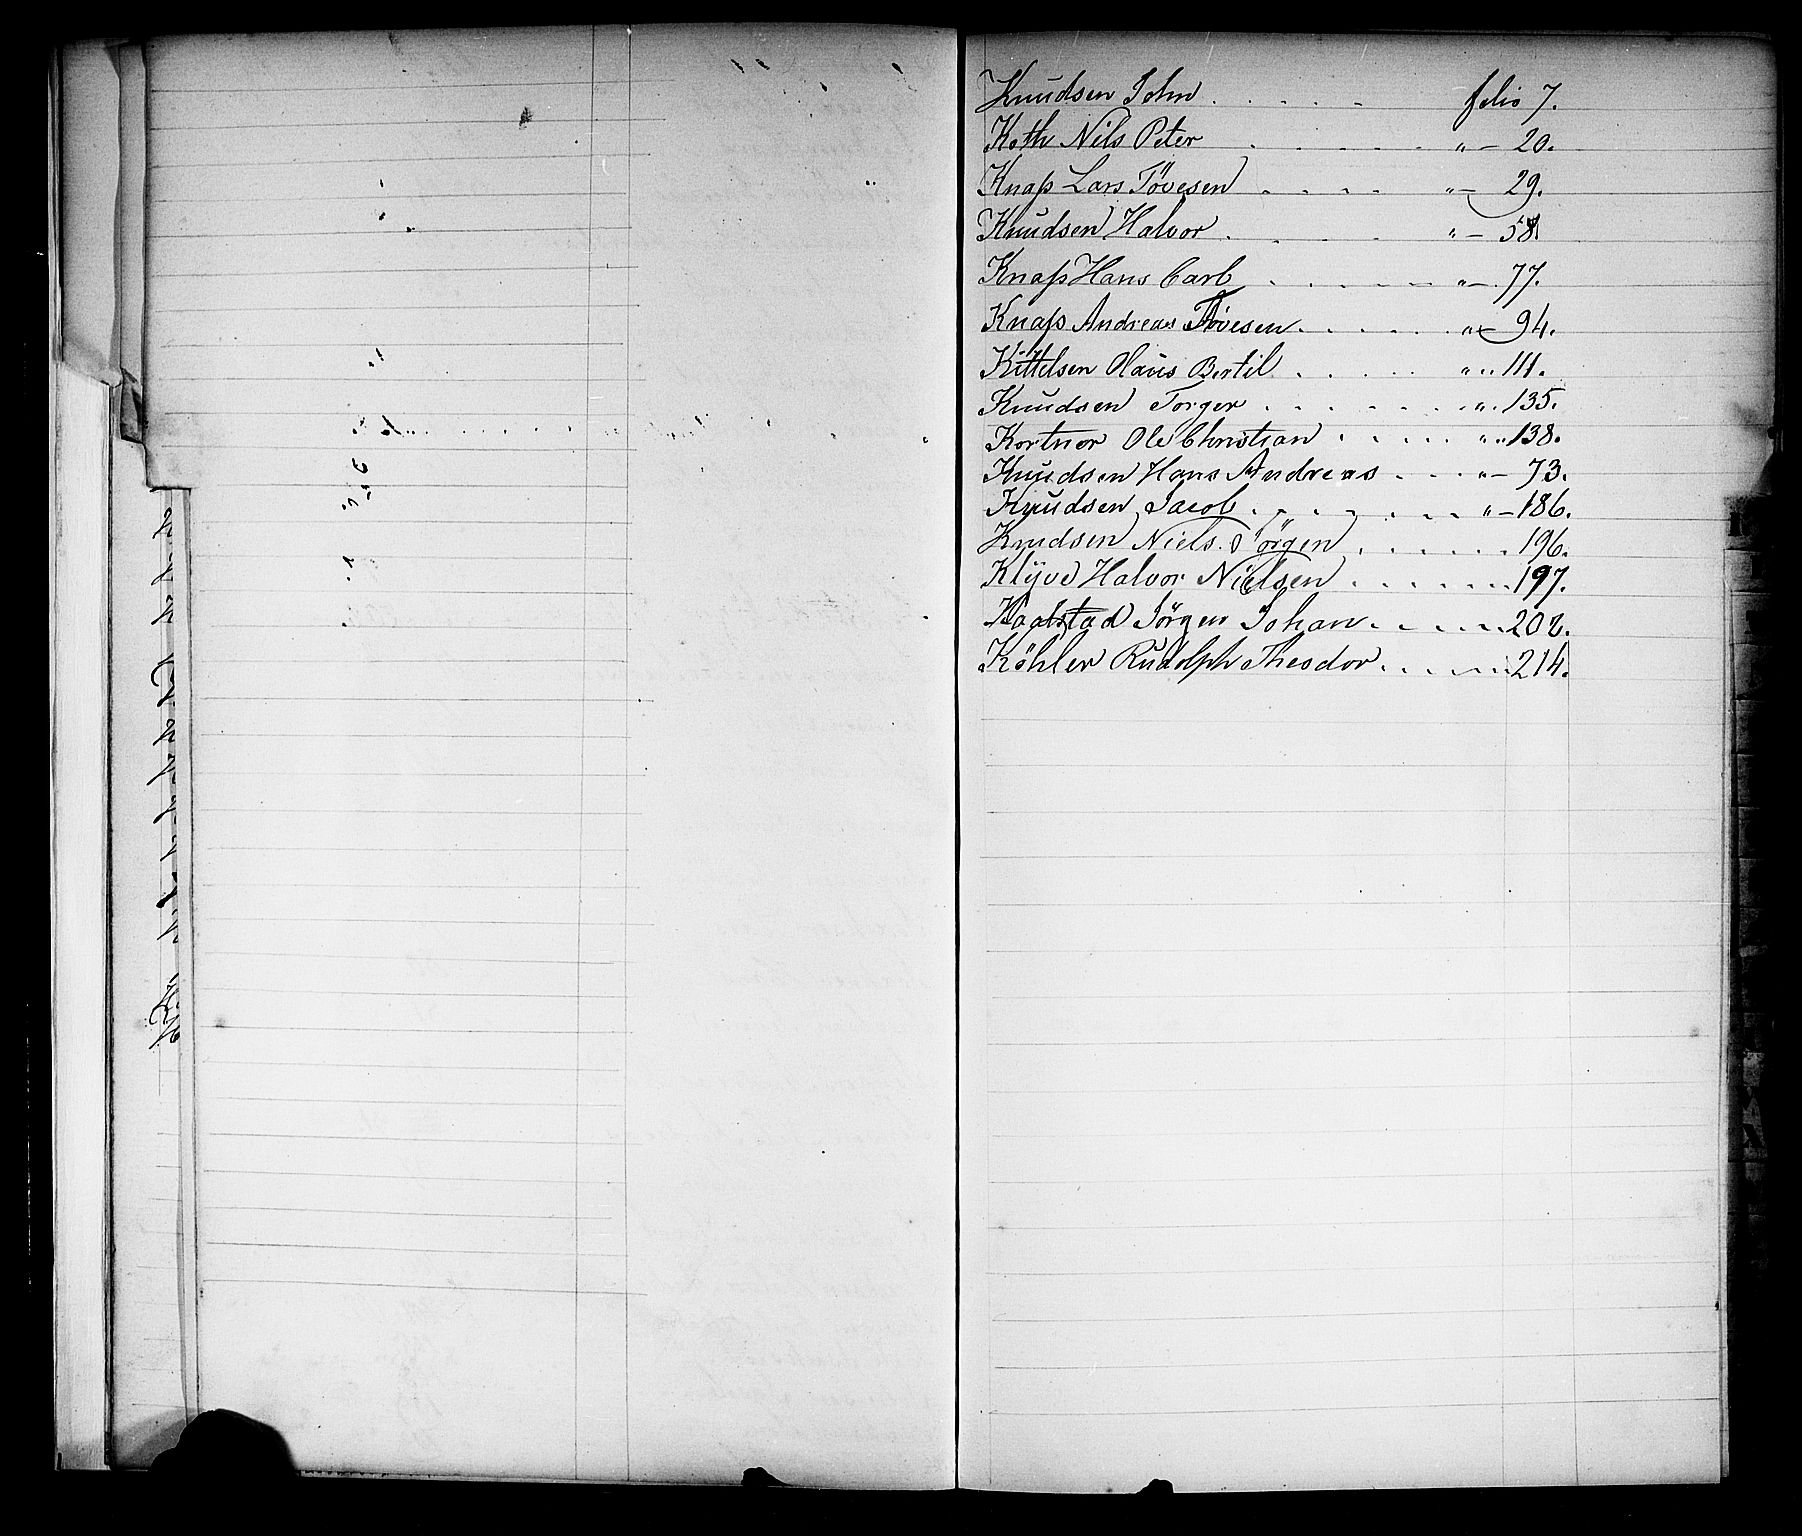 Knudsen John . . . . . folio 7.
Koth Nils Peter . . . . . . „ — 20.
Knaſs Lars Tøvesen . . . . „ — 29.
Knudsen Halvor . . . . „ — 58
Knaſs Hans Carl . . . . . „ — 77.
Knaſs Andreas Tøvesen . . . . . „ — 94.
Kittelsen Olaus Bertil . . . . „ „ 111.
Knudsen Torger . . . . . . „ . 135.
Kortnor Ole Christian . . . . „ „ 138.
Knudsen Hans Andreas . . . „ — 73.
Knudsen Jacob . . . . . . . „ — 186.
Knudsen Niels Jörgen . . . . . . 196.
Klÿve Halvor Nielsen . . . . . . 197.
Jörgen Johan . . . . . 202.
Köhler Rudolph Theodor . . . . . 214.